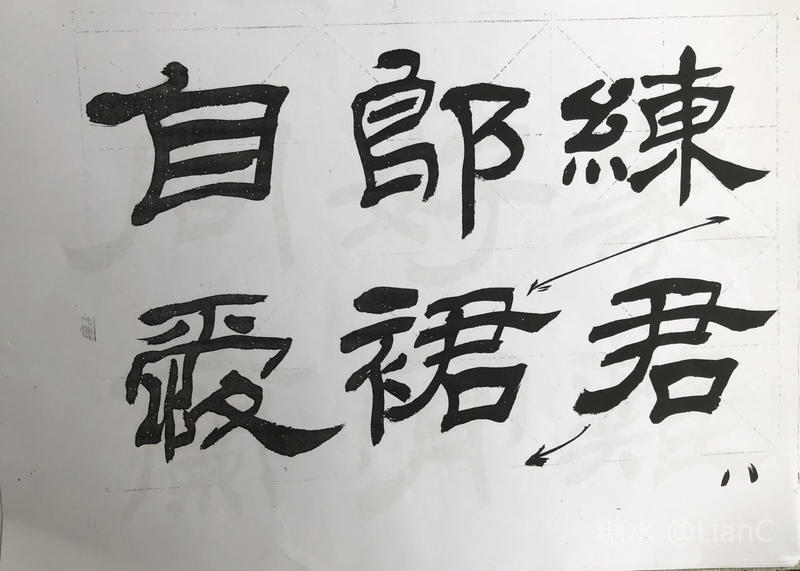 練君
郎裙
自愛
糖水 @LianC